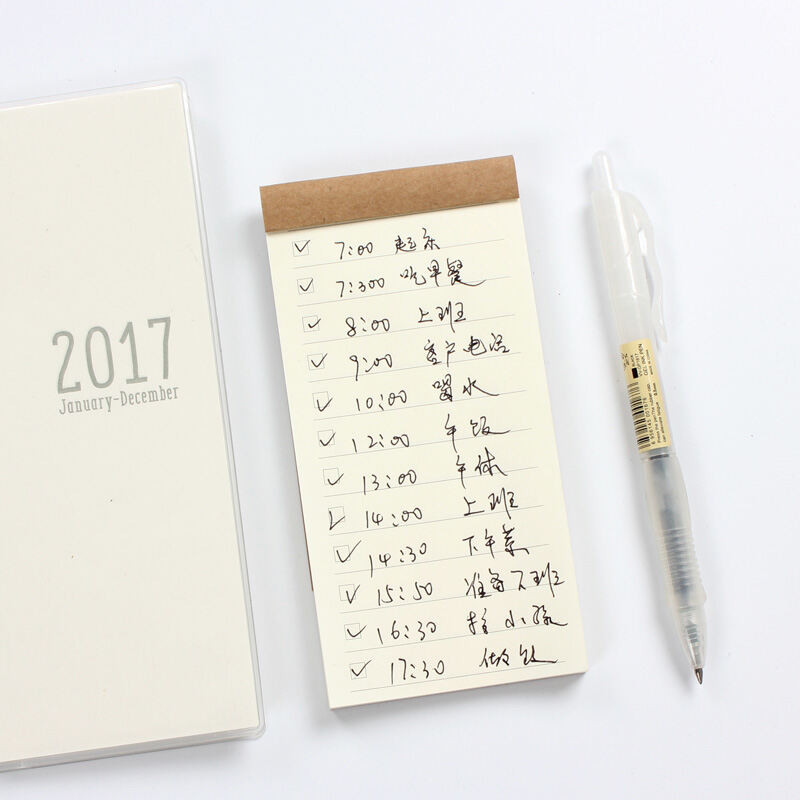 2017
January-December
7:00 起床
7:300 吃早餐
8:00 上班
9:00 客户电话
10:00 喝水
12:00 午饭
13:00 午休
14:00 上班
14:30 下午茶
15:50 准备下班
16:30 接小孩
17:30 做饭
GEL INK PEN